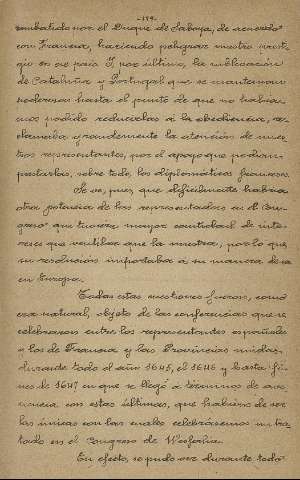 -174-
combatido por el Duque de Saboya, de acuerdo
con Francia, haciendo peligrar nuestro presti-
gio en ese país. Y por último, la sublevación
de Cataluña y Portugal que se mantenían
poderosas hasta el punto de que no había-
mos podido reducirlas á la obediencia, re-
clamaba grandemente la atención de nues-
tros representantes, por el apoyo que podían
prestarlas, sobre todo los diplomáticos franceses.
Se ve, pues, que dificilmente habría
otra potencia de las representadas en el Con-
greso que tuviera mayor cantidad de inte-
reses que ventilar que la nuestra, por lo que
su resolución importaba á su manera de ser
en Europa.
Todas estas cuestiones fueron, como
era natural, objeto de las conferencias que se
celebraron entre los representantes españoles
y los de Francia y las Provincias unidas,
durante todo el año 1645, el 1646 y hasta fi-
nes de 1647 en que se llegó á términos de ave-
nencia con estas últimas, que habían de ser
las únicas con las cuales celebrásemos un tra-
tado en el Congreso de Wesfalia.
En efecto, se pudo ver durante todo